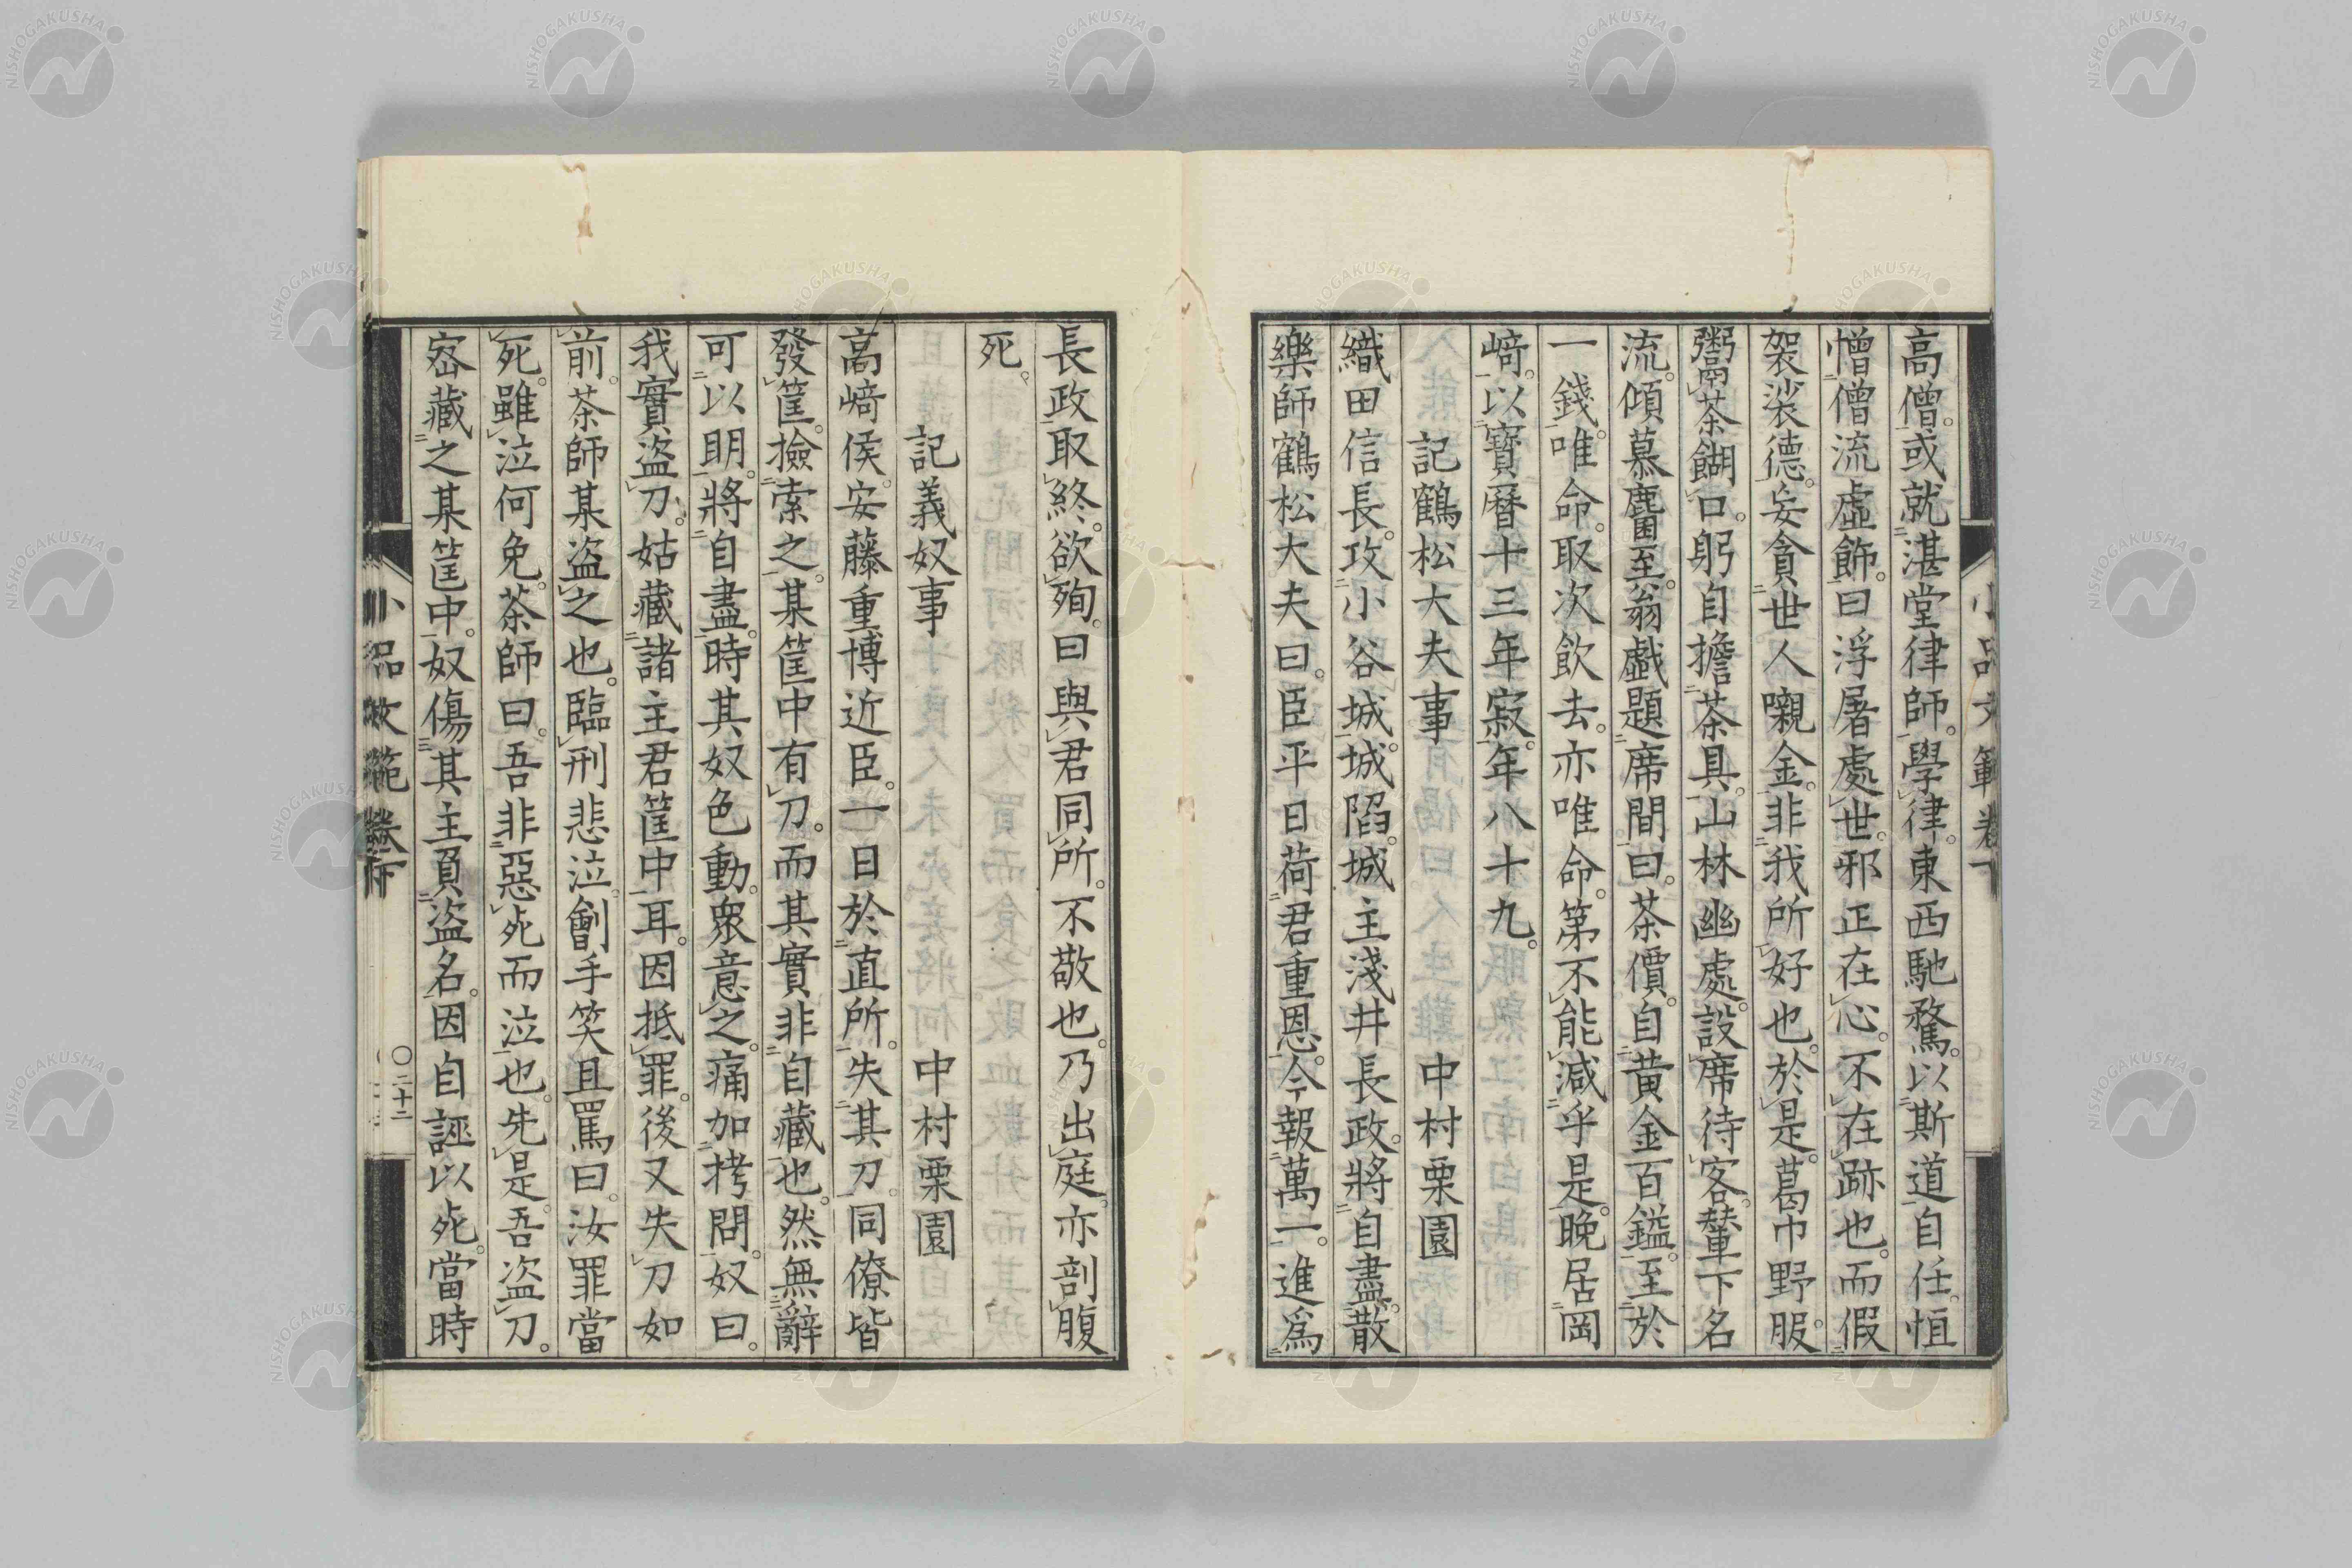 高僧。或就湛堂律師。學律。東西馳騖。以斯道自任。恒
憎僧流虛飾。曰浮屠處世。邪正在心。不在跡也。而假
袈裟德。妄貪世人嚫金。非我所好也。於是。葛巾野服。
鬻茶餬口。躬自擔茶具。山林幽處。設席待客。輦下名
流。傾慕麕至。翁戲題席間曰。茶價。自黃金百鎰。至於
一錢。唯命。取次飲去。亦唯命。第不能減乎是。晚居岡
﨑。以寶曆十三年寂。年八十九。
記鶴松大夫事 中村栗園
織田信長。攻小谷城。城陷。城主淺井長政。將自盡。散
樂師鶴松大夫曰。臣平日荷君重恩。今報萬一。進爲
長政取終。欲殉。曰與君同所。不敬也。乃出庭。亦剖腹
死。
記義奴事 中村栗園
高﨑侯。安藤重博近臣。一日於直所。失其刀。同僚皆
發篋。撿索之。某篋中有刀。而其實非自藏也。然無辭
可以明。將自盡。時其奴色動。衆意之。痛加拷問。奴曰。
我實盜刀。姑藏諸主君篋中耳。因抵罪。後又失刀如
前。茶師某盜之也。臨刑悲泣。劊手笑且罵曰。汝罪當
死。雖泣何免。茶師曰。吾非惡死而泣也。先是。吾盜刀。
密藏之某篋中。奴傷其主負盜名。因自誣以死。當時
小品文範卷下
小品文範卷下 〇二十二
NISHOGAKUSHA